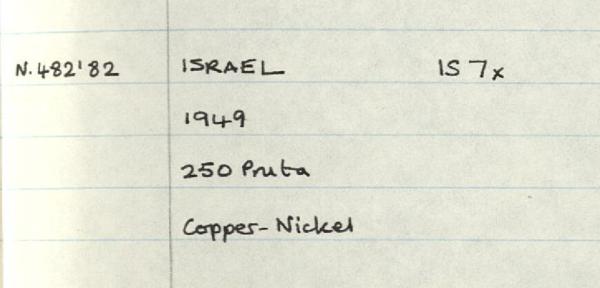 N.482'82 ISRAEL IS 7x
1949
250 Pruta
Copper-Nickel